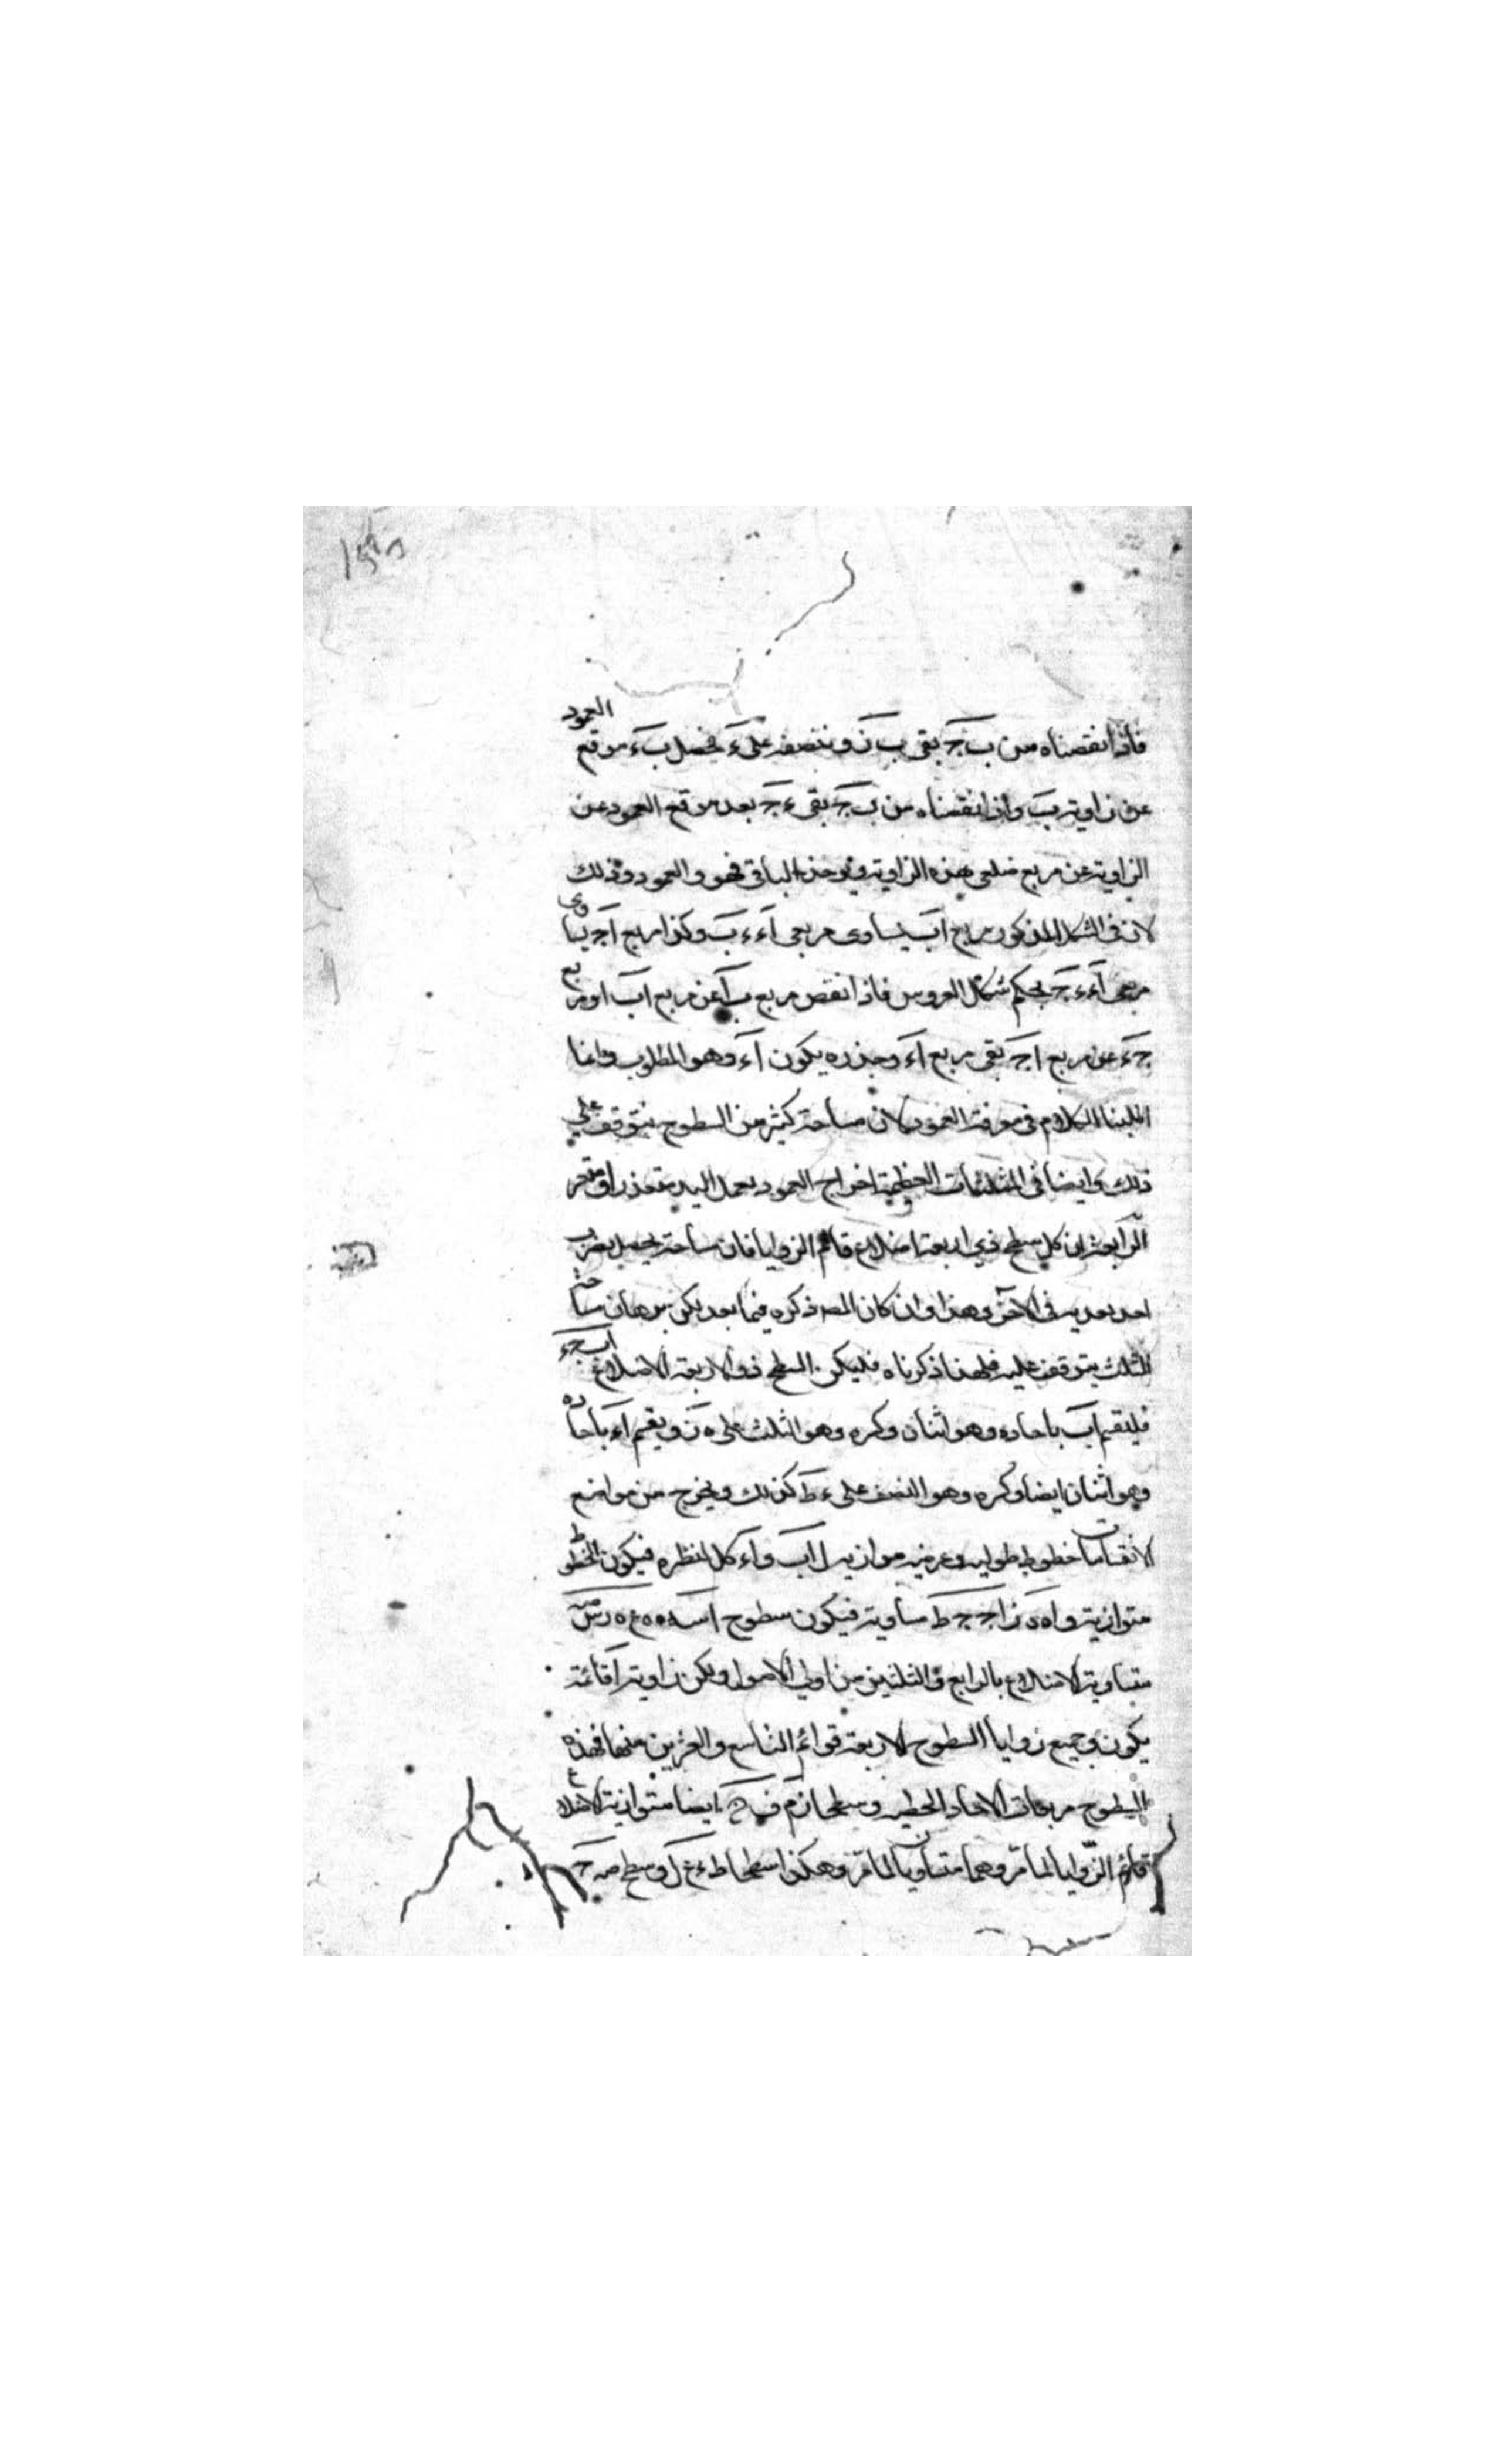 فاذا نقصناه من ب ج بقى ب ز وننصفه على ء فيحصل ب ء موقع العمود
عن زاوية ب واذا نقصناه من ب ج بقى ء ج بعد موقع العمود عن
الزاوية عن مربع ضلعى هذه الزاوية ويؤخذ الباقى فهو والعمود وذلك
لان فى الشكل المذكور مربع اب يساوى مربعى آء ء ب وكذا مربع آج يساوى
مربعى آء ء ج بحكم شكل العروس فاذا نقص مربع ب آ عن مربع اب او مربع
ج ء عن مربع ا ج بقى مربع آء وجذره يكون آء وهو المطلوب وانما
اطلبنا الكلام فى معرفة العمود لان مساحة كثير من السطوح يتوقف على
ذلك وايضا فى المثلثات العظيمة اخراج العمود بعمل اليد متعذر او متعسر
الرابعة ان كل سطح ذى اربعة اضلاع قائم الزوايا فان مساحته يحصل بضرب
احد بعديه فى الآخر وهذا وان كان المصـ ذكره فيما بعد لكن برهان مساحة
المثلث يتوقف عليه فلهذا ذكرناه فليكن السطح ذو الاربعة الاضلاع اب ج ء
فليقسم اب باحاده وهو اثنان وكره وهو الثلث على ه ز ويقسم آء باحاده
وهو اثنان ايضا وكره وهو النصف على ء ط كذلك ويخرج من مواضع
الانقسامات خطوط طولية وعرضية موازية ل اب و اء كل لنظره فيكون الخطوط
متوازية و اه ه ز ا ج ج ط متساوية فيكون سطوح
متساوية الاضلاع بالرابع والثلثين من اولى الاصول ولكن زاوية آ قائمة
يكون جميع زوايا السطوح الاربعة قوائم التاسع والعشرين منها فهذه
السطوح مربعات الاحاد الخطية وسطحا ايضا متوازية الاضلاع
قائم الزوايا لما مر وهما متساويان لما مر وهكذا سطحا وسطح